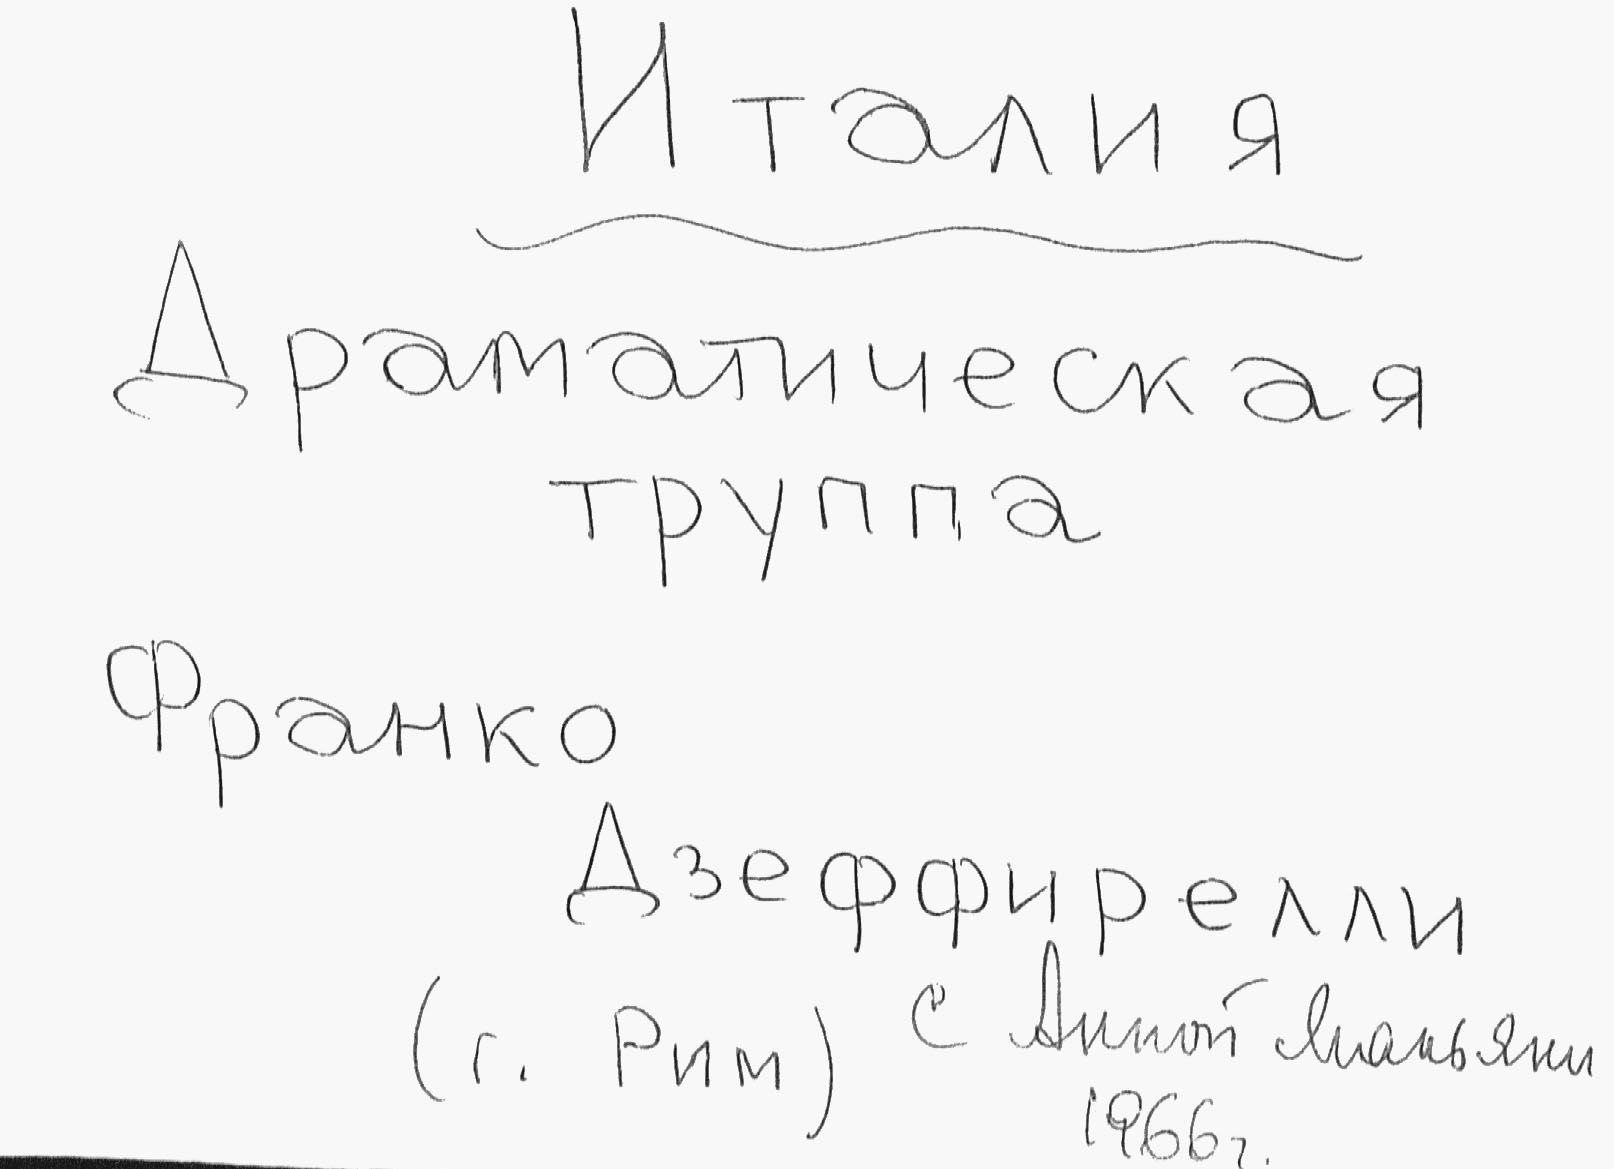 Италия
Драматическая
труппа
Франко
Дзеффирелли
(г. Рим) с Анной Маньяни
1966г.